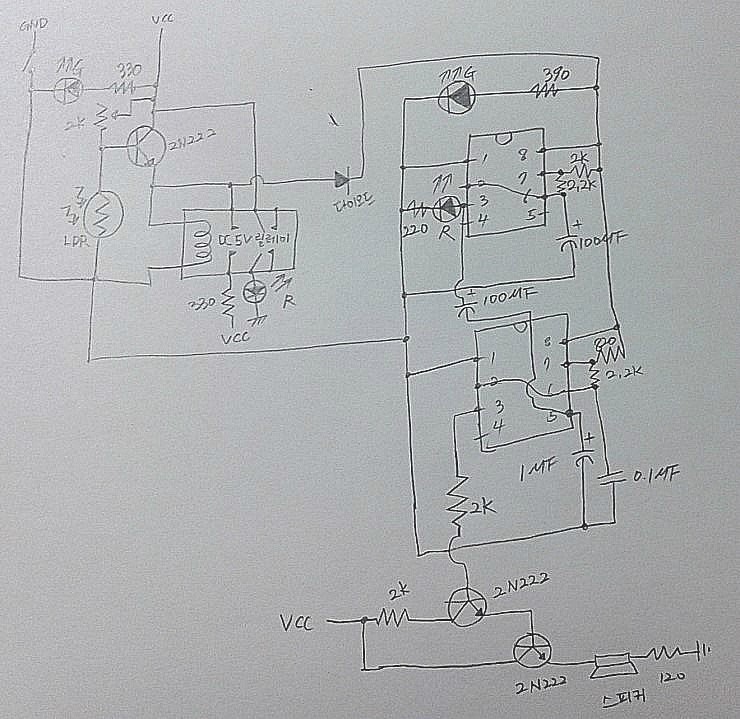 GND
VCC
G
330
2K
2N222
LDR
DC 5V 릴레이
330
R
VCC
다이오드
G
390
1
8
2
7
3
6
4
5
2K
2.2K
220
R
+
100MF
+
100MF
1
8
2
7
3
6
4
5
2.2K
+
1MF
0.1MF
2K
2N222
VCC
2K
2N222
스피커
120